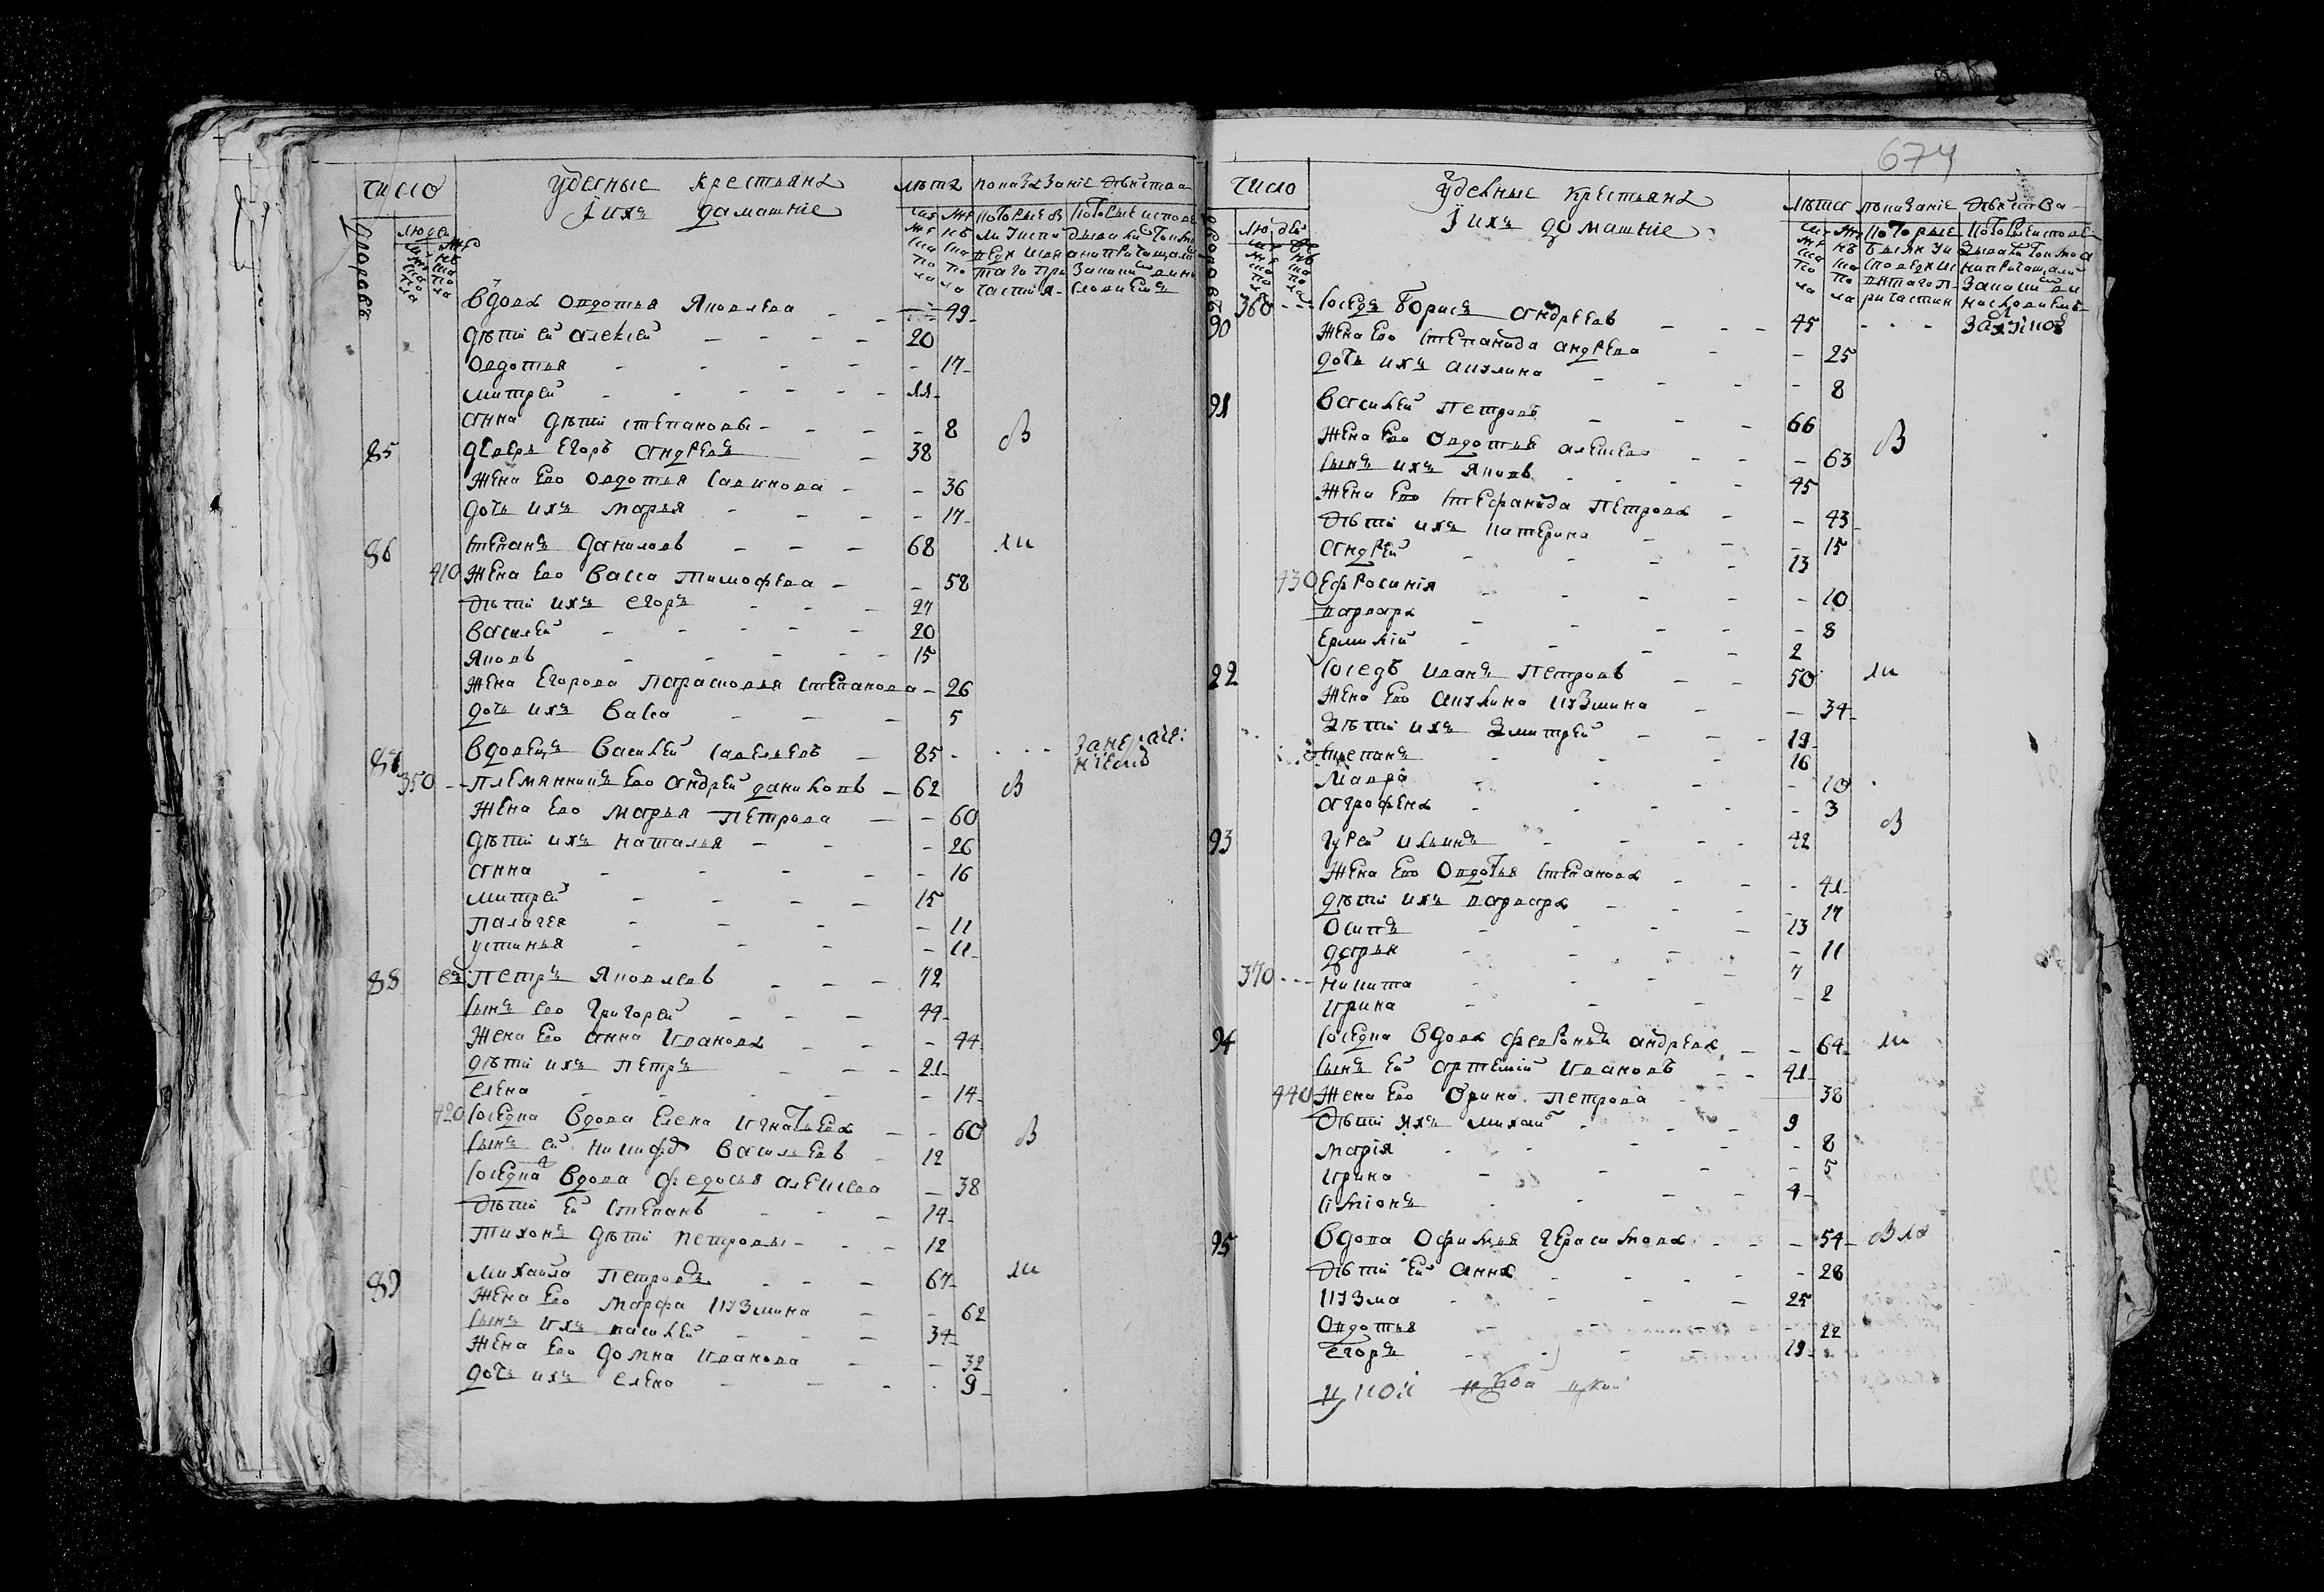 число
удѣльные крестьянѣ
лѣта
показание действа
людей
і ихъ домашніе
дворовъ
вдова овдотья яковлева - 49
дѣти ей алеѯей - 20
овдотья - 17
митрей - 11
анна дѣти степановы - 8
85 дверь егоръ андреевъ - 38 в
жена ево овдотья савинова - 36
дочь ихъ марья - 17
86 степанъ даниловъ - 68 ли
410 жена ево васса тимофева - 58
дѣти ихъ егоръ - 27
василей - 20
яковъ - 15
жена егорова парасковья степанова - 26
дочь ихъ васса - 5
87 вдовецъ василей савельевъ - 85
350 племянникъ ево андрей даниловъ - 62 в
жена ево марья петрова - 60
дѣти ихъ наталья - 26
анна - 16
митрей - 15
палагея - 11
устинья - 11
88 петръ яковлевъ - 72
сынъ ево григорей - 44
жена ево анна иванова - 44
дѣти ихъ петръ - 21
елена - 14
420 соседка вдова елена игнатьева - 60 в
сынъ ей никифоръ васильевъ - 12
соседка вдова федосья алексева - 38
дѣти ей степанъ - 14
тихонъ дѣти петровы - 12
89 михаила петровъ - 67 ли
жена ево марфа кузмина - 62
сынъ ихъ василей - 34
жена ево домна иванова - 32
дочь ихъ елена - 9
674
число
удельные крестьянѣ
лѣта показаніе действа
людей
і ихъ домашніе
дворовъ
90 360 соседъ борисъ андреевъ - 45
жена ево степанида андрева - 25
дочь ихъ акулина - 8
91 василей петровъ - 66 в
жена ево овдотья алексева - 63
сынъ ихъ яковъ - 45
жена ево стефанида петрова - 43
дѣти ихъ катерина - 15
андрей - 13
430 ефросинія - 10
варвара - 8
ермилій - 2
92 соседъ иванъ петровъ - 50 ли
жена ево акулина кузмина - 34
дѣти ихъ дмитрей - 19
степанъ - 16
мавра - 10
аграфена - 3
93 гурей ильинъ - 42 в
жена ево овдотья степанова - 41
дѣти ихъ варвара - 17
осипъ - 13
дарья - 11
370 никита - 7
ирина - 2
94 соседка вдова февронья андрева - 64 ли
сынъ ей артемій ивановъ - 41
440 жена ево орина петрова - 38
дѣти ихъ михаил - 9
марія - 8
ирина - 5
симіонъ - 4
95 вдова офимья герасимова - 54
дѣти ей анна - 28
кузма - 25
овдотья - 22
егоръ - 19